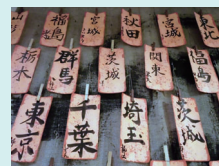 山 福島 宮城 秋田 宮城 東北
栃木 群馬 茨城 関東 福島
東京 千葉 埼玉 茨城